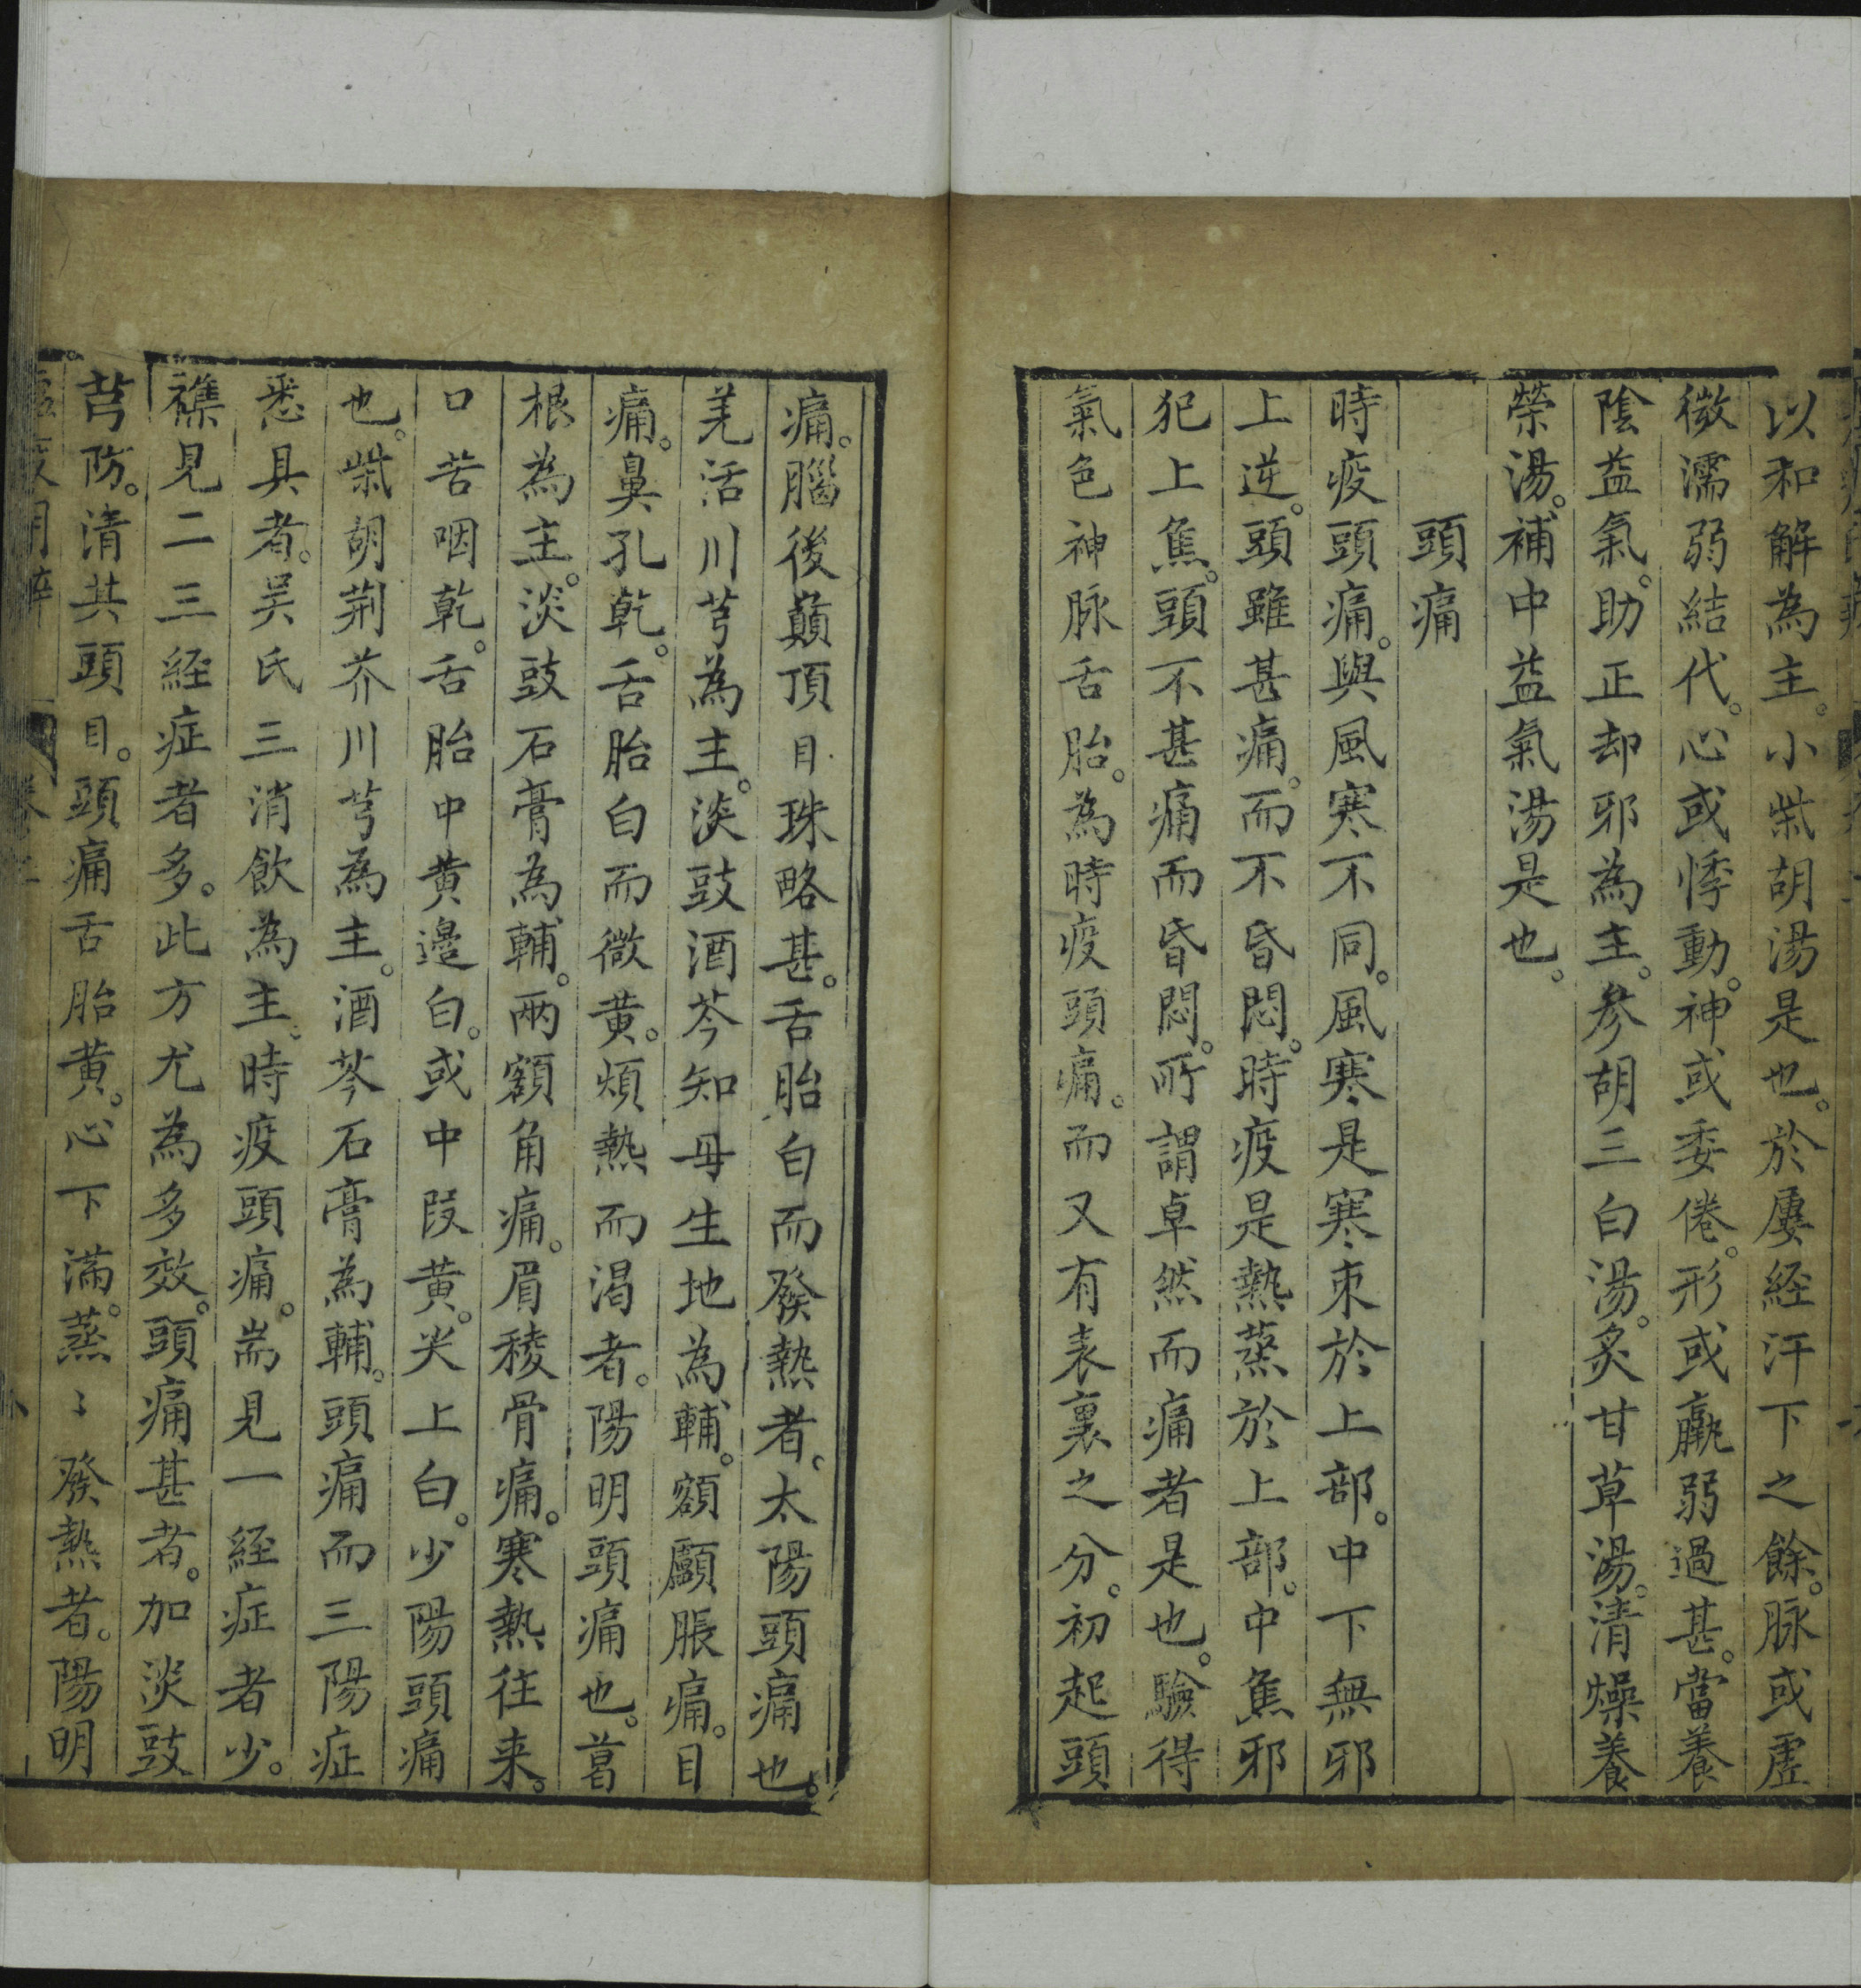 以和解為主。小柴胡湯是也。於屢経汗下之餘。脉或虛
微濡弱結代。心或悸動。神或委倦。形或羸弱過甚。當養
陰益氣。助正却邪為主。參胡三白湯。炙甘草湯。清燥養
榮湯。補中益氣湯是也。
頭痛
時疫頭痛。與風寒不同。風寒是寒束於上部。中下無邪
上逆。頭雖甚痛。而不昏悶。時疫是熱蒸於上部。中焦邪
犯上焦。頭不甚痛而昏悶。所謂卓然而痛者是也。驗得
氣色神脉舌胎。為時疫頭痛。而又有表裏之分。初起頭
痛。腦後巔頂目珠略甚。舌胎白而發熱者。太陽頭痛也。
羌活川芎為主。淡豉酒芩知母生地為輔。額顱脹痛。目
痛。鼻孔乾。舌胎白而微黃。煩熱而渴者。陽明頭痛也。葛
根為主。淡豉石膏為輔。兩額角痛。眉稜骨痛。寒熱往来。
口苦咽乾。舌胎中黃邉白。或中段黃。尖上白。少陽頭痛
也。柴胡荆芥川芎為主。酒芩石膏為輔。頭痛而三陽症
悉具者。吴氏三消飲為主。時疫頭痛。耑見一経症者少。
襍見二三経症者多。此方尤為多效。頭痛甚者。加淡豉
芎防。清其頭目。頭痛舌胎黃。心下滿。蒸〻發熱者。陽明